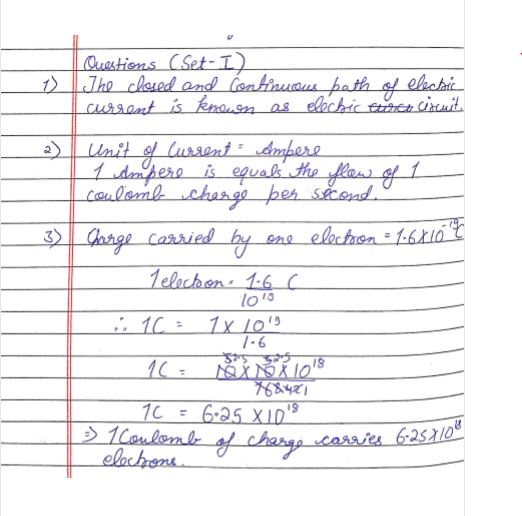 Questions (Set-I)
1) The closed and Continuous path of electric
current is known as electric circuit.
2) Unit of Current = Ampere
1 Ampere is equals the flow of 1
coulomb charge per second.
3) Charge carried by one electron = 1.6X10⁻¹⁹C
1 electron = 1.6 C
10¹⁹
∴ 1C = 1 X 10¹⁹
1.6
1C = 10 X 10 X 10¹⁸
1C = 6.25 X 10¹⁸
⇒ 1 Coulomb of charge carries 6.25X10¹⁸
electrons.